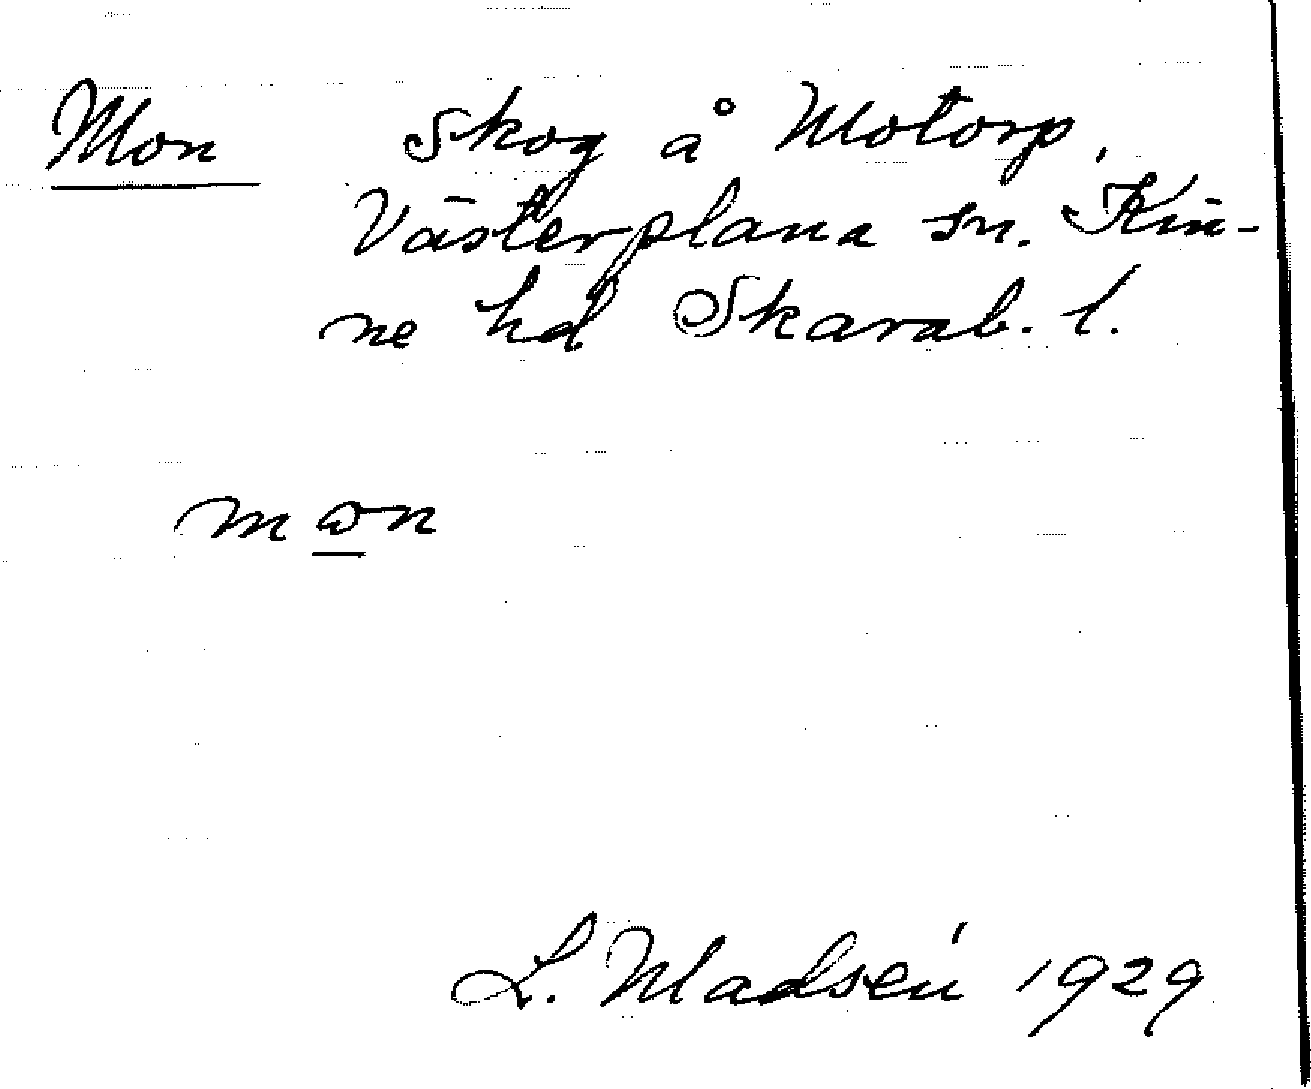 Mon Skog å Motorp,
Västerplana sn. Kin-
ne hd Skarab. l.
mɷn
L. Madsén 1929